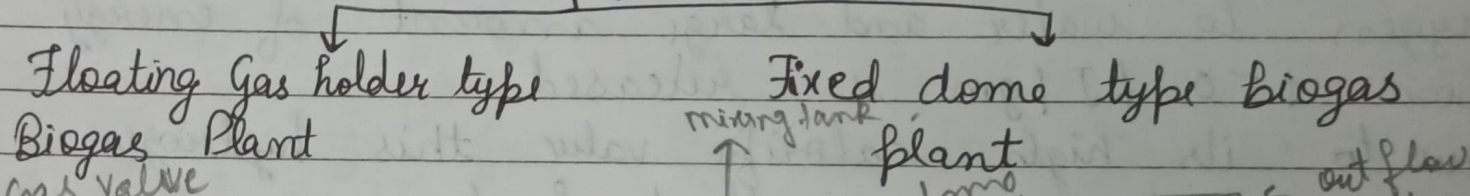 Floating Gas holder type
Biogas Plant
Fixed dome type biogas
plant
mixing tank
valve
out flow